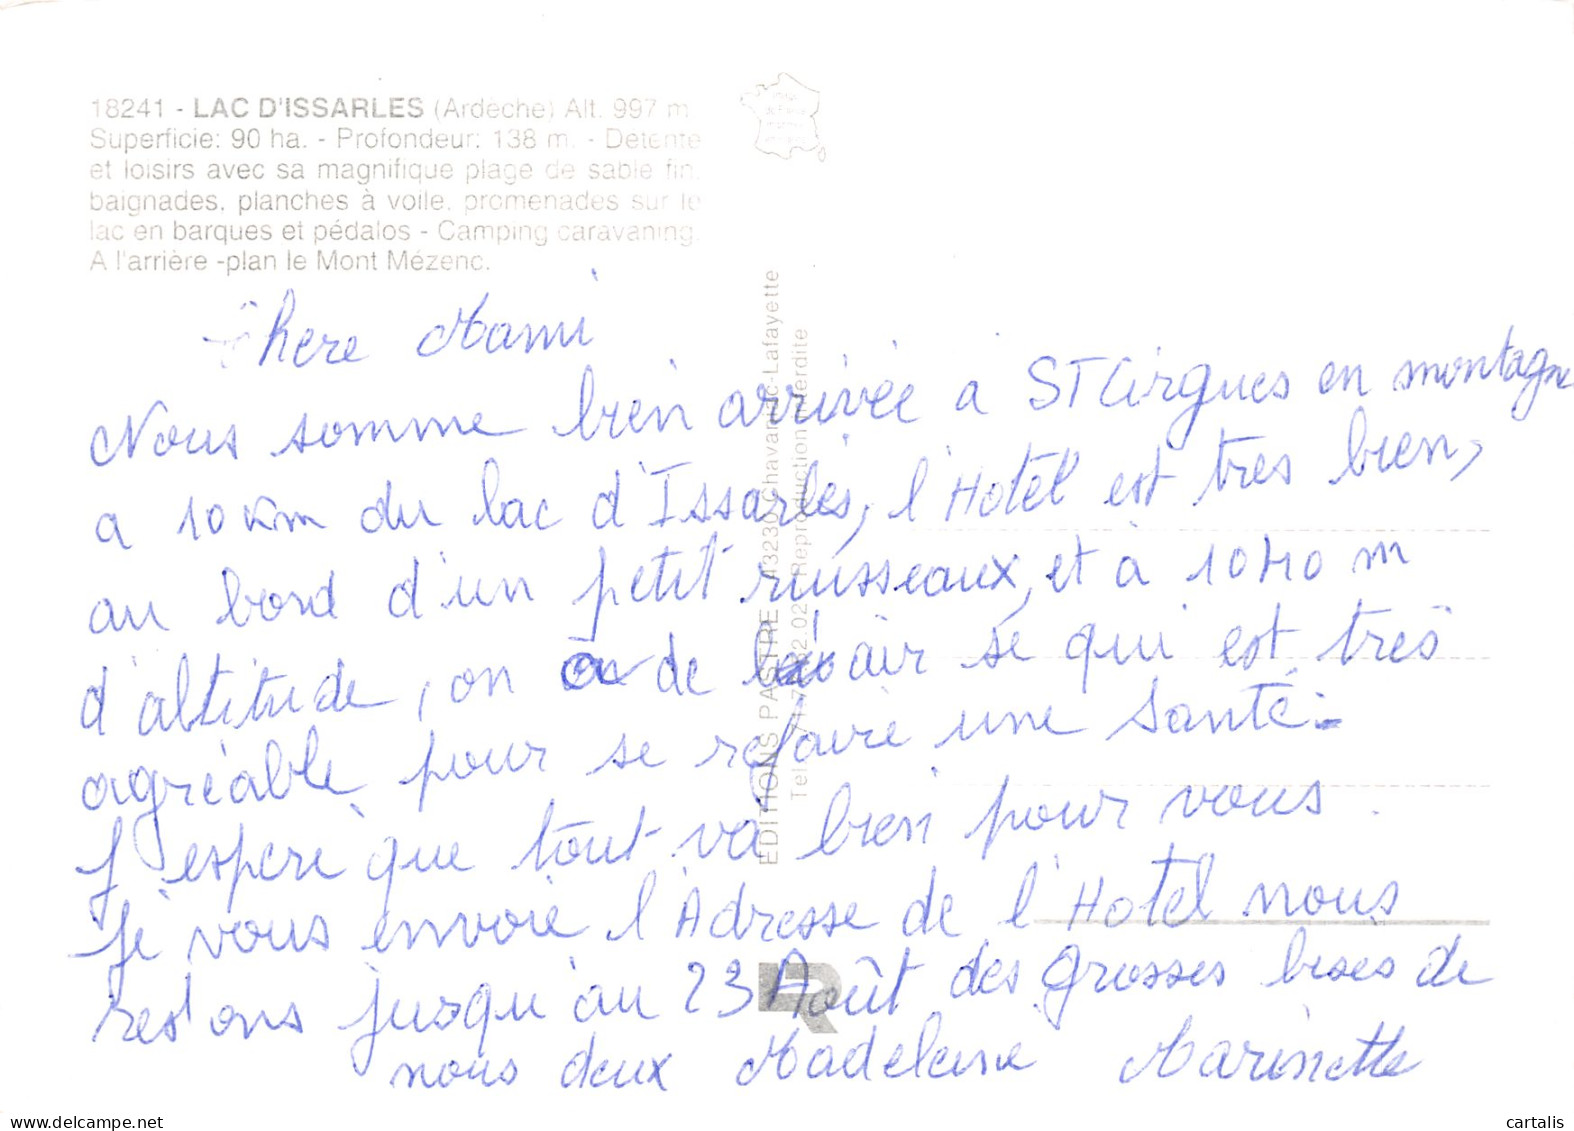 18241 - LAC D'ISSARLES (Ardèche) Alt. 997 m.
Superficie: 90 ha. - Profondeur: 138 m. - Detente
et loisirs avec sa magnifique plage de sable fin,
baignades, planches à voile, promenades sur le
lac en barques et pédalos - Camping caravaning.
A l'arrière -plan le Mont Mézenc.
chere Mami
Nous somme bien arrivée a ST Cirgues en montagne
a 10 km du lac d'Issarlès, l'Hotel est très bien,
au bord d'un petit ruisseaux, et à 1040 m
d'altitude, on a de air se qui est très
agréable pour se refaire une Santé.
J'espere que tout va bien pour vous.
Je vous envoie l'Adresse de l'Hotel nous
restons jusqu'au 23 Août des grosses bises de
nous deux Madeleine Marinette
EDITIONS PASTRE 43230 Chavaniac-Lafayette
Reproduction interdite
cartalis